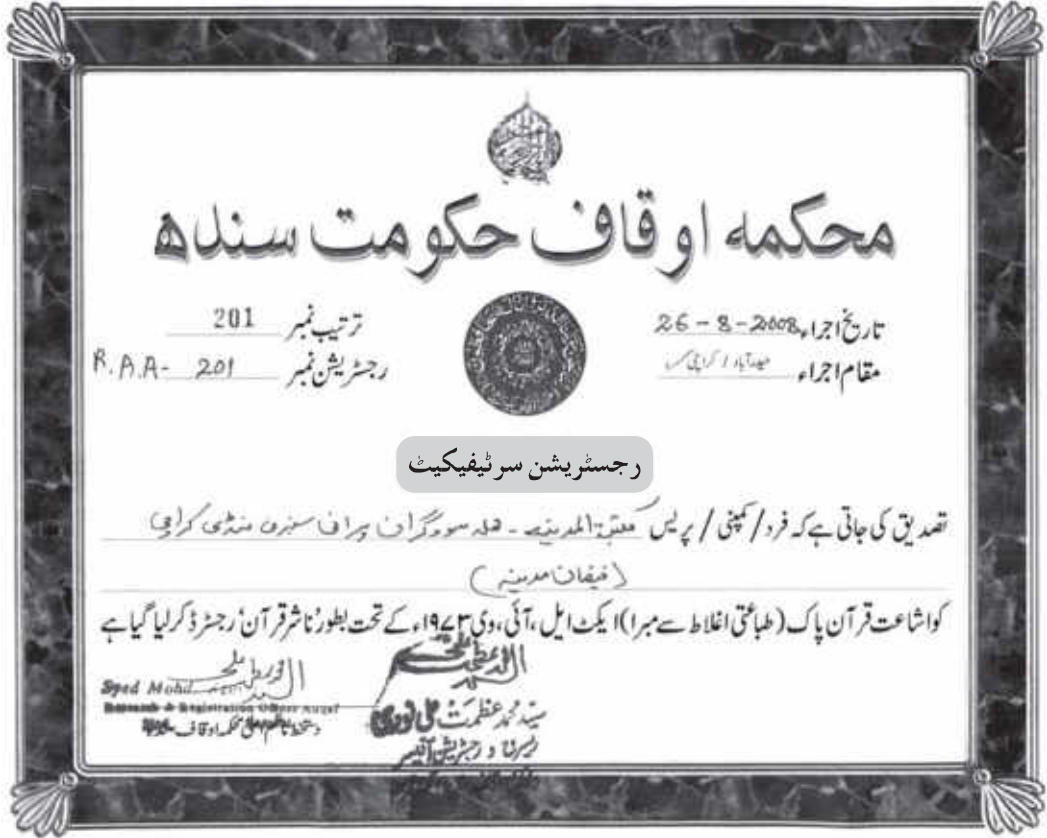 محکمہ اوقاف حکومت سندھ
تاریخ اجراء 26-8-2008
ترتیب نمبر 201
مقام اجراء حیدرآباد / کراچی
رجسٹریشن نمبر R.A.A- 201
رجسٹریشن سرٹیفیکیٹ
تصدیق کی جاتی ہے کہ فرد / کمپنی / پریس مکتبۃ المدینہ - محلہ سوداگران پرانی سبزی منڈی کراچی
(فیضان مدینہ)
کو اشاعت قرآن پاک (طباعتی اغلاط سے مبرا) ایکٹ ایل، آئی، وی ۱۹۷۳ء کے تحت بطور 'ناشر قرآن' رجسٹرڈ کر لیا گیا ہے
Syed Mohd.
Research & Registration Officer Auqaf
سید محمد عظمت علی نوری
ریسرچ و رجسٹریشن آفیسر